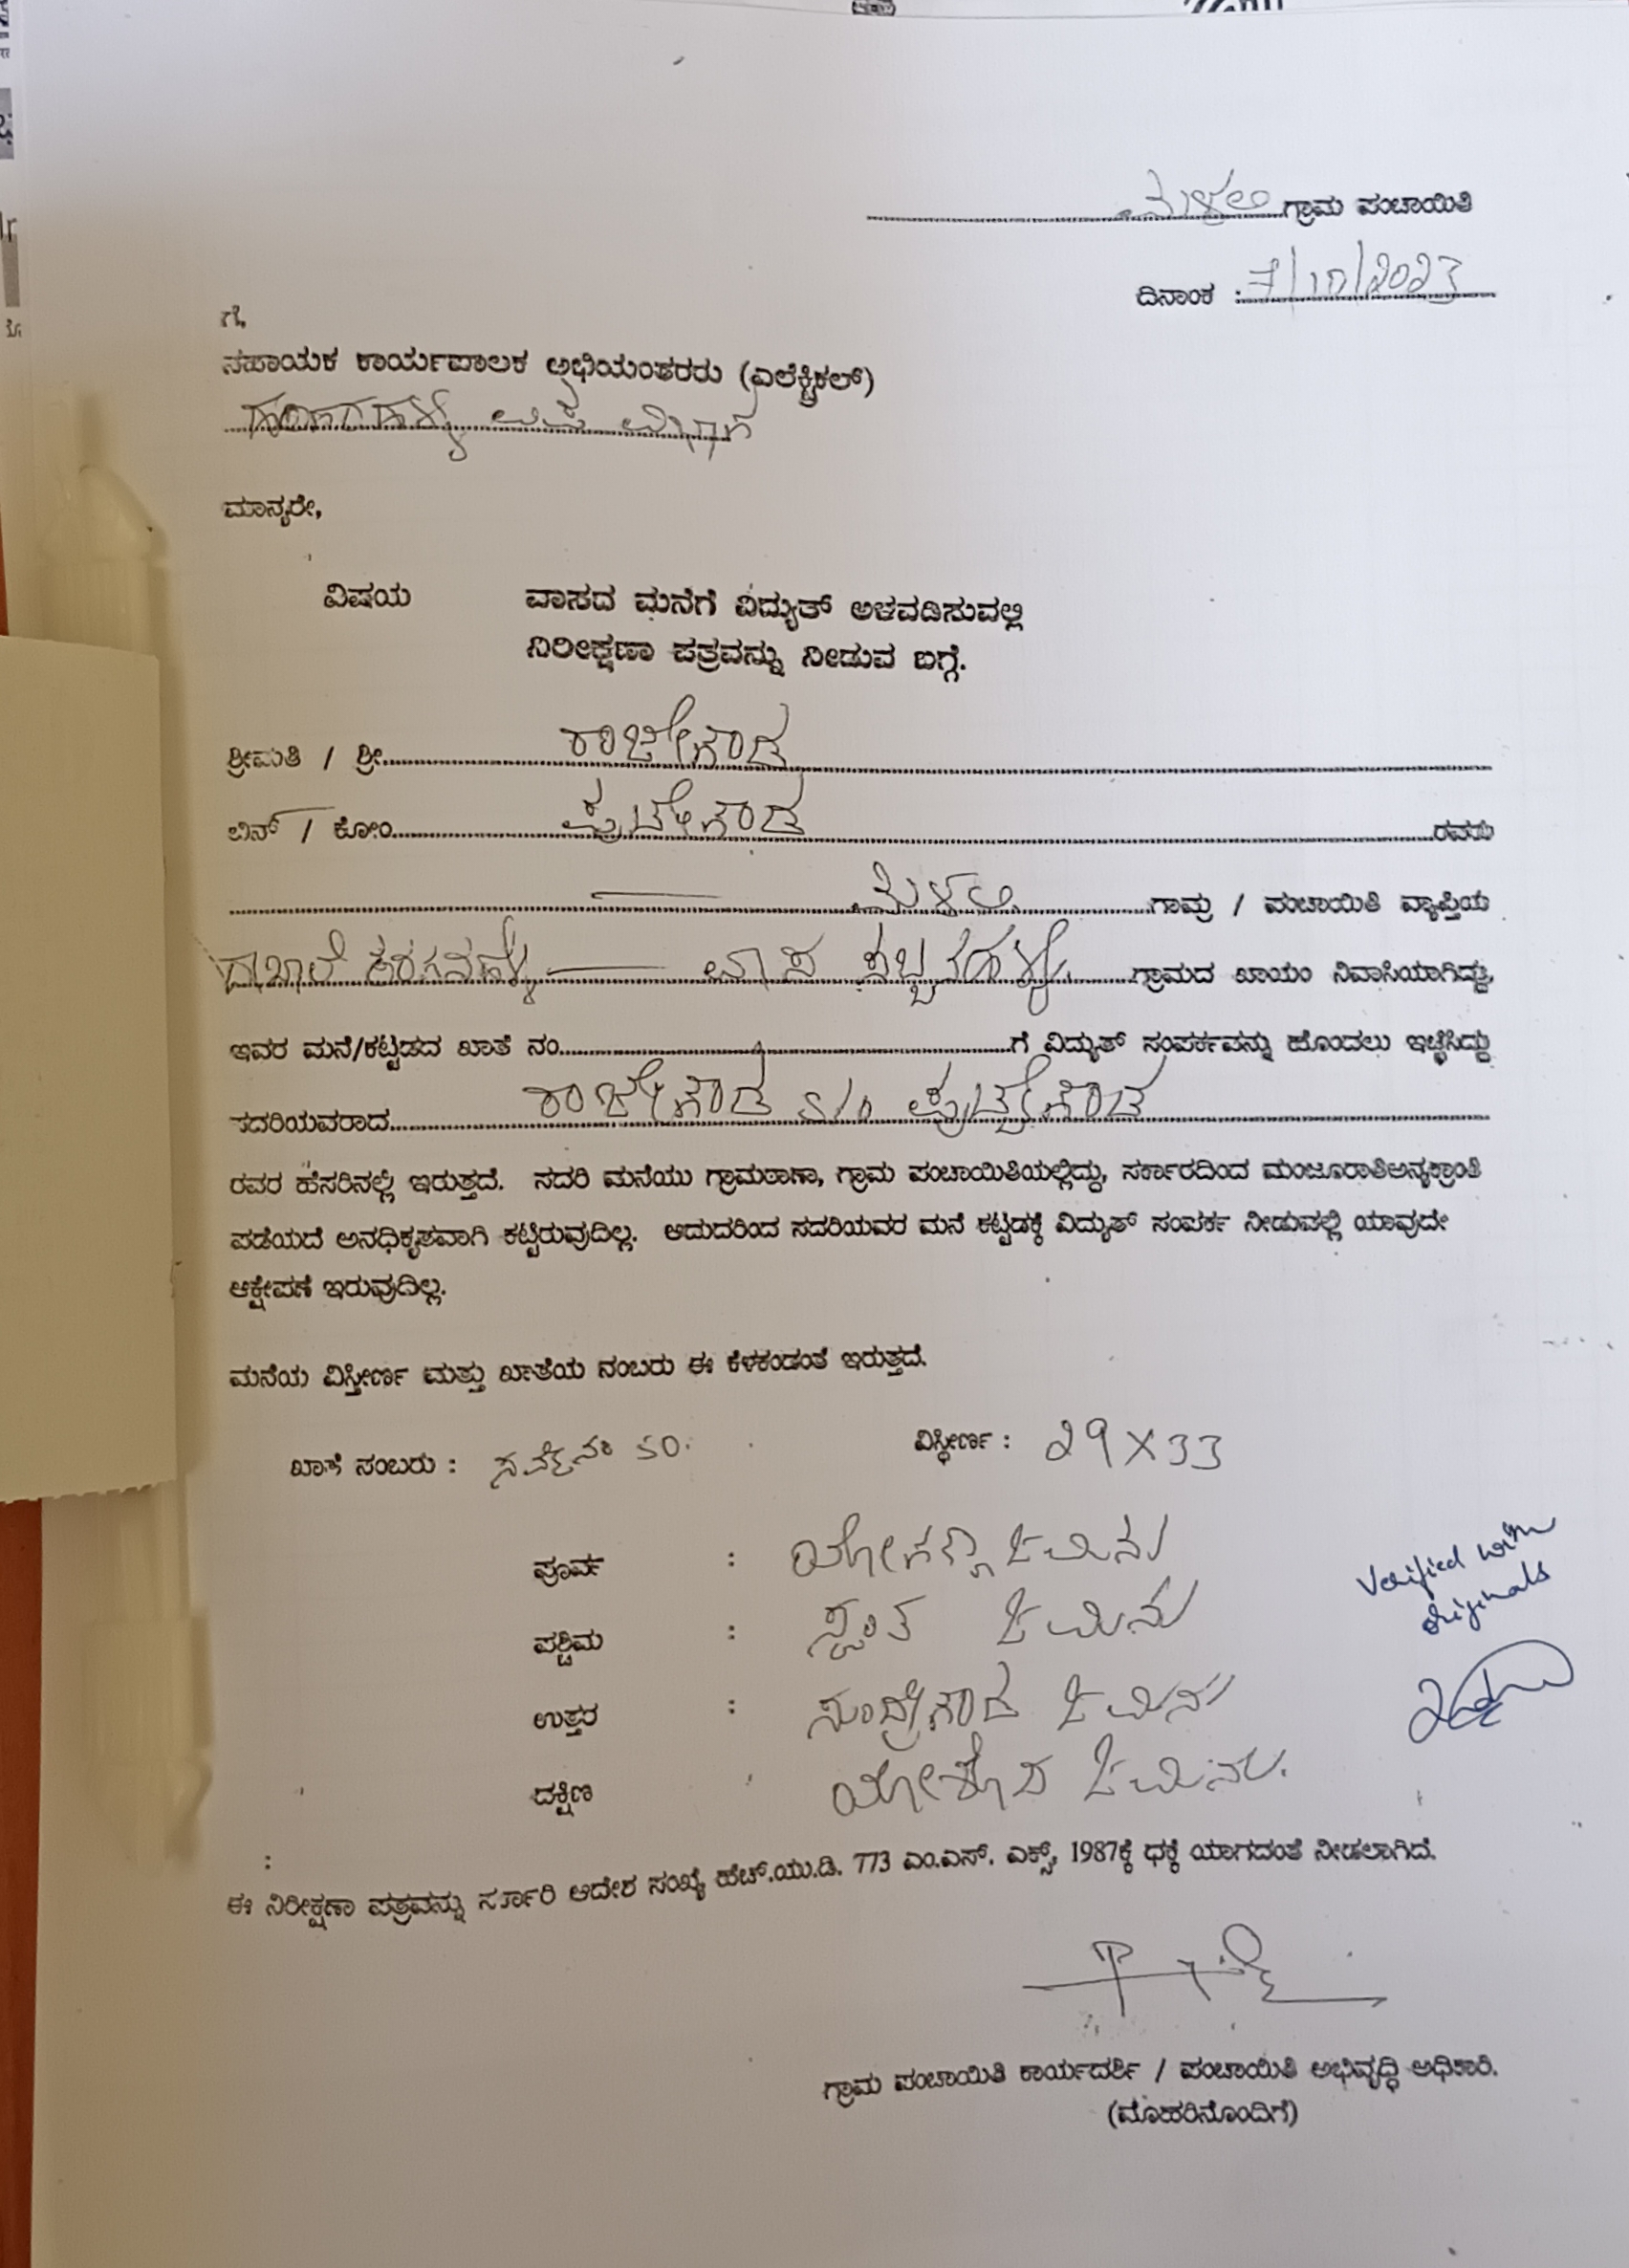 ಮಳಲಿ ಗ್ರಾಮ ಪಂಚಾಯಿತಿ
ದಿನಾಂಕ : 7/10/2023
ಗೆ,
ಸಹಾಯಕ ಕಾರ್ಯಪಾಲಕ ಅಭಿಯಂತರರು (ಎಲೆಕ್ಟ್ರಿಕಲ್)
ಉಪ ವಿಭಾಗ
ಮಾನ್ಯರೇ,
ವಿಷಯ ವಾಸದ ಮನೆಗೆ ವಿದ್ಯುತ್ ಅಳವಡಿಸುವಲ್ಲಿ
ನಿರೀಕ್ಷಣಾ ಪತ್ರವನ್ನು ನೀಡುವ ಬಗ್ಗೆ.
ಶ್ರೀಮತಿ / ಶ್ರೀ ರಾಜೇಗೌಡ
ಬಿನ್ / ಕೋಂ ಪುಟ್ಟೇಗೌಡ ರವರು
ಮಳಲಿ ಗ್ರಾಮ / ಪಂಚಾಯಿತಿ ವ್ಯಾಪ್ತಿಯ
ವಾಸ ಗ್ರಾಮದ ಖಾಯಂ ನಿವಾಸಿಯಾಗಿದ್ದು,
ಇವರ ಮನೆ/ಕಟ್ಟಡದ ಖಾತೆ ನಂ. ಗೆ ವಿದ್ಯುತ್ ಸಂಪರ್ಕವನ್ನು ಹೊಂದಲು ಇಚ್ಛಿಸಿದ್ದು
ಸದರಿಯವರಾದ ರಾಜೇಗೌಡ S/o ಪುಟ್ಟೇಗೌಡ
ರವರ ಹೆಸರಿನಲ್ಲಿ ಇರುತ್ತದೆ. ಸದರಿ ಮನೆಯು ಗ್ರಾಮಠಾಣಾ, ಗ್ರಾಮ ಪಂಚಾಯಿತಿಯಲ್ಲಿದ್ದು, ಸರ್ಕಾರದಿಂದ ಮಂಜೂರಾತಿಅನ್ಯಕ್ರಾಂತಿ
ಪಡೆಯದೆ ಅನಧಿಕೃತವಾಗಿ ಕಟ್ಟಿರುವುದಿಲ್ಲ. ಆದುದರಿಂದ ಸದರಿಯವರ ಮನೆ ಕಟ್ಟಡಕ್ಕೆ ವಿದ್ಯುತ್ ಸಂಪರ್ಕ ನೀಡುವಲ್ಲಿ ಯಾವುದೇ
ಆಕ್ಷೇಪಣೆ ಇರುವುದಿಲ್ಲ.
ಮನೆಯ ವಿಸ್ತೀರ್ಣ ಮತ್ತು ಖಾತೆಯ ನಂಬರು ಈ ಕೆಳಕಂಡಂತೆ ಇರುತ್ತದೆ.
ಖಾತೆ ನಂಬರು : ಸರ್ವೆ ನಂ 50. ವಿಸ್ತೀರ್ಣ : 29 X 33
ಪೂರ್ವ : ಜಮೀನು
ಪಶ್ಚಿಮ : ಸ್ವಂತ ಜಮೀನು
Verified with
originals
ಉತ್ತರ : ಜಮೀನು
ದಕ್ಷಿಣ ಜಮೀನು.
:
ಈ ನಿರೀಕ್ಷಣಾ ಪತ್ರವನ್ನು ಸರ್ಕಾರಿ ಆದೇಶ ಸಂಖ್ಯೆ ಹೆಚ್.ಯು.ಡಿ. 773 ಎಂ.ಎಸ್. ಎಕ್ಸ್, 1987ಕ್ಕೆ ಧಕ್ಕೆ ಯಾಗದಂತೆ ನೀಡಲಾಗಿದೆ.
ಗ್ರಾಮ ಪಂಚಾಯಿತಿ ಕಾರ್ಯದರ್ಶಿ / ಪಂಚಾಯಿತಿ ಅಭಿವೃದ್ಧಿ ಅಧಿಕಾರಿ.
(ಮೊಹರಿನೊಂದಿಗೆ)